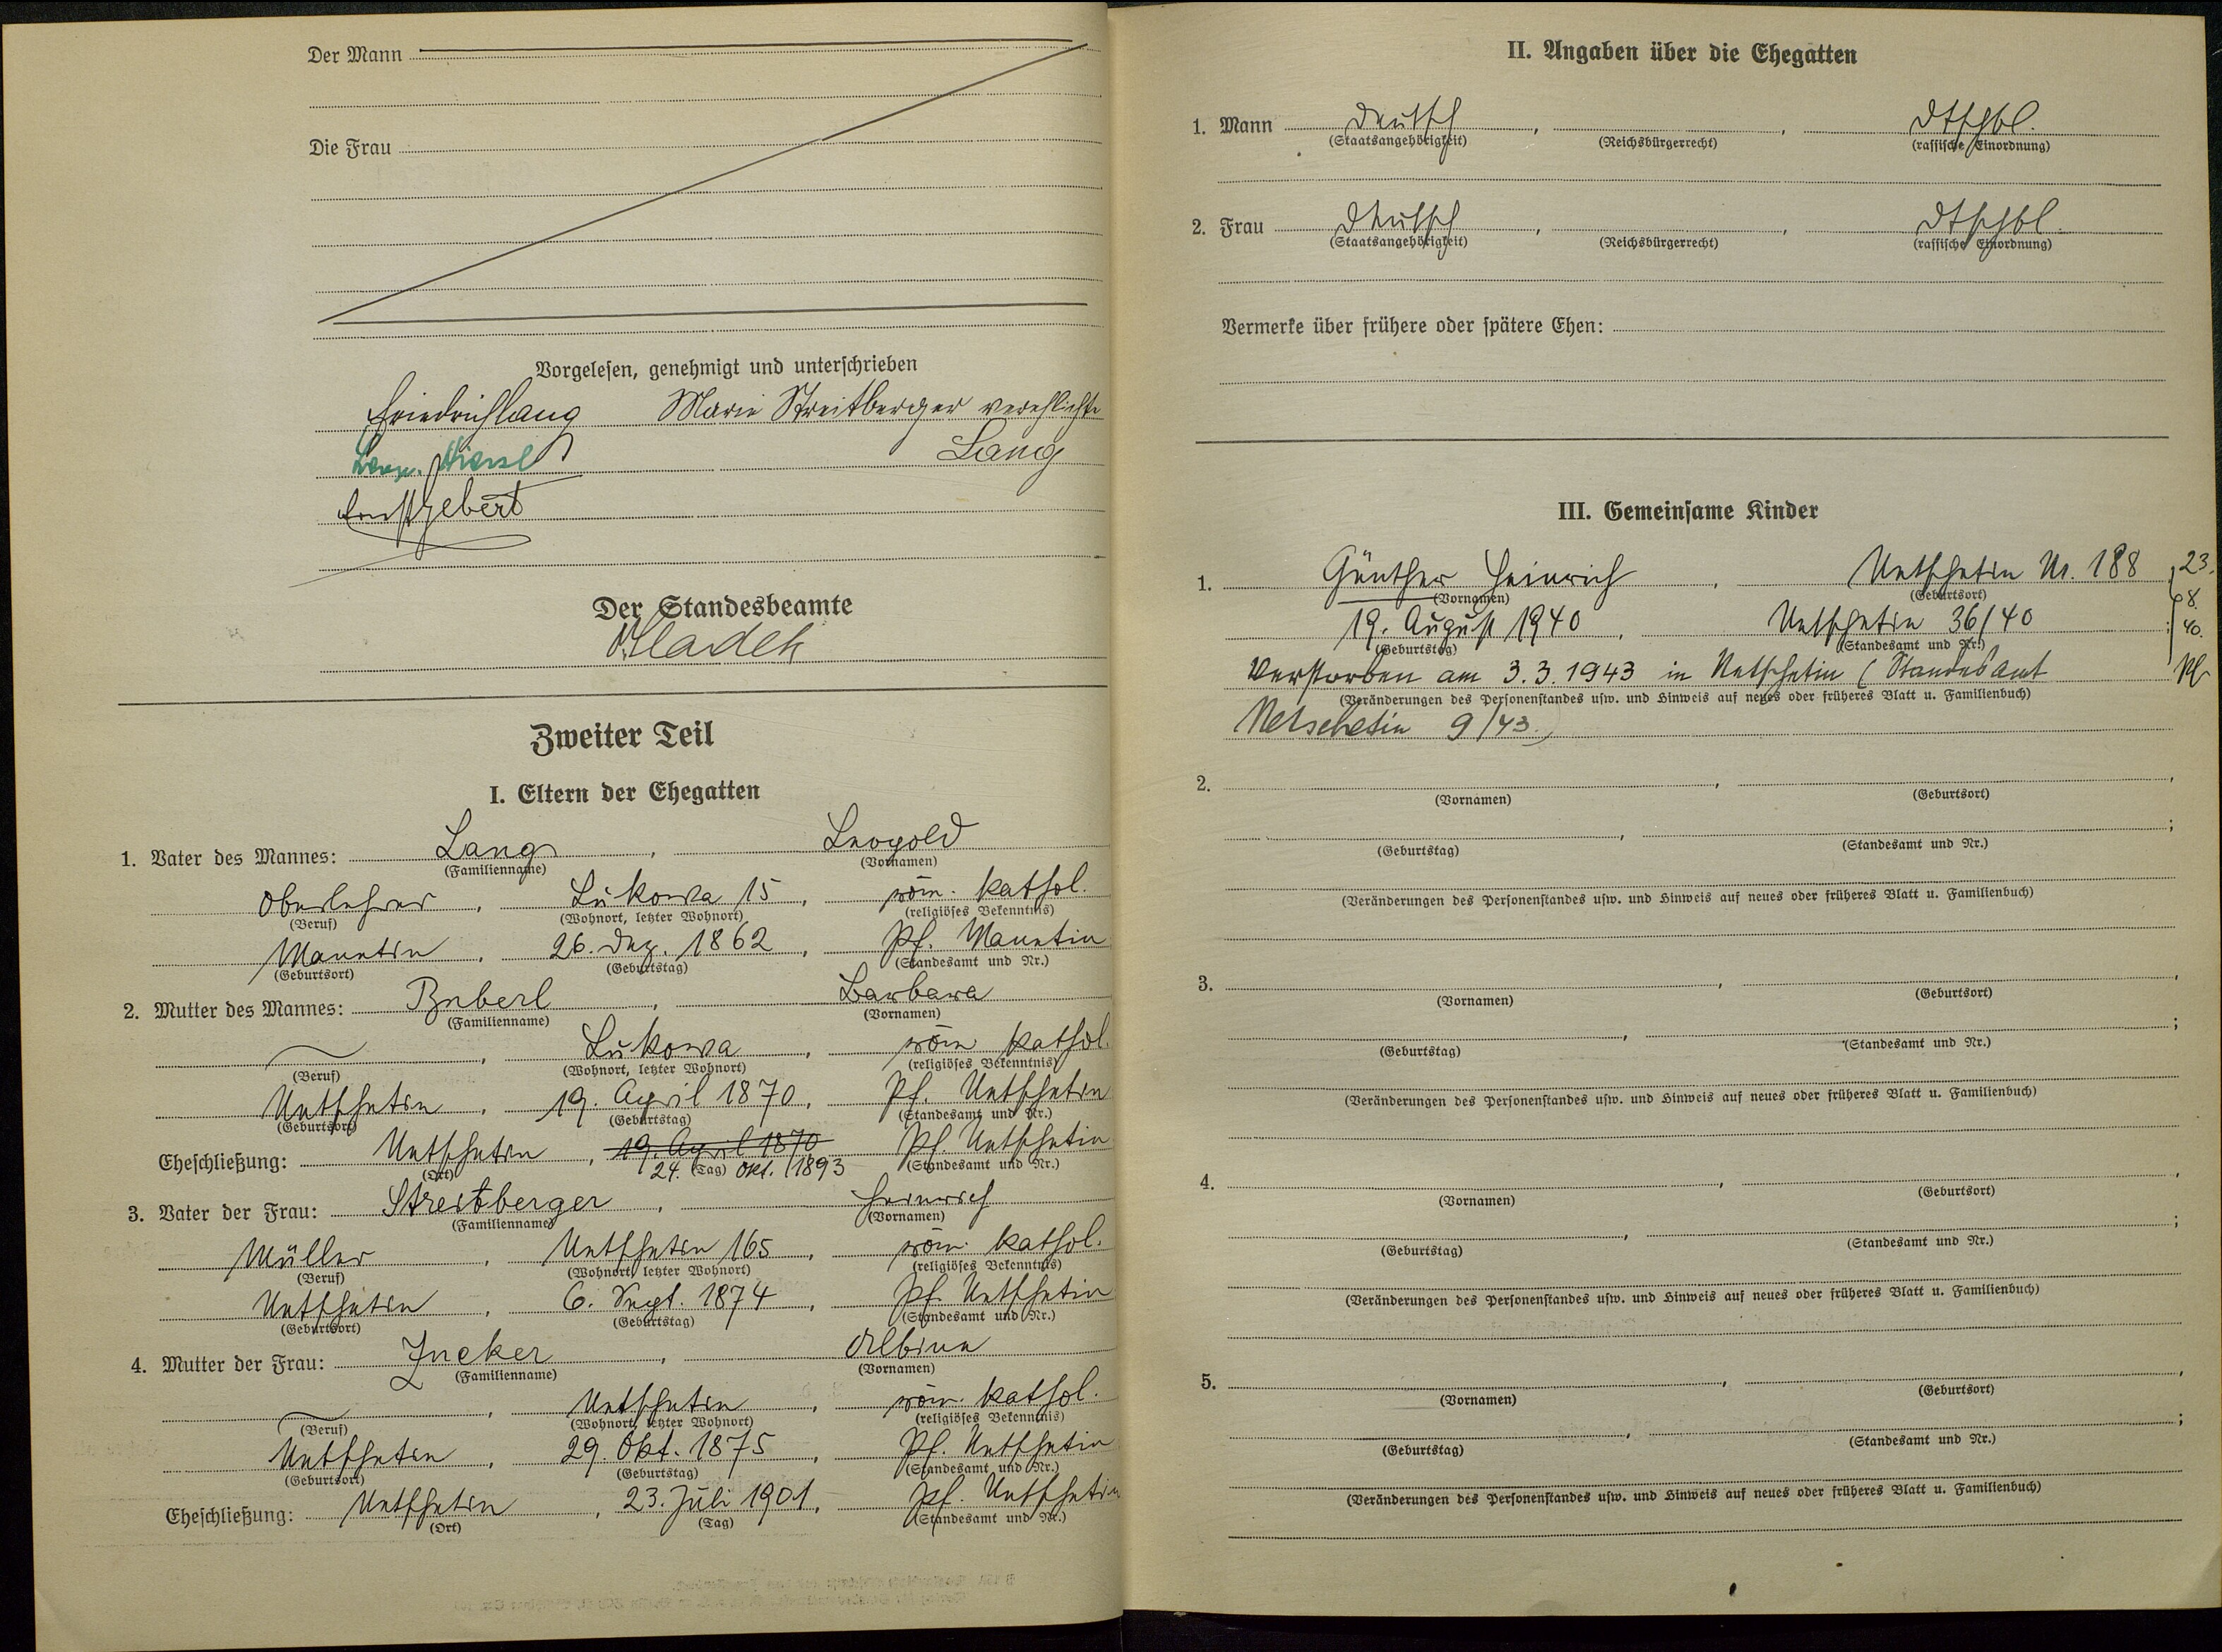 Der Mann
Die Frau
Vorgelesen, genehmigt und unterschrieben
Friedrich Lang Marie Streitberger verehlichte
Lang
Ernst Gebert
Der Standesbeamte
Zweiter Teil
I. Eltern der Ehegatten
1. Vater des Mannes: Lang, Leopold
(Familienname) (Vornamen)
Oberlehrer, Lukowa 15, röm. kathol.
(Beruf) (Wohnort, letzter Wohnort) (religiöses Bekenntnis)
Manetin, 26. Dez. 1862, Pf. Manetin
(Geburtsort) (Geburtstag) (Standesamt und Nr.)
2. Mutter des Mannes: Barbara
(Familienname) (Vornamen)
Lukowa, röm kathol.
(Beruf) (Wohnort, letzter Wohnort) (religiöses Bekenntnis)
Netschetin, 19. April 1870, Pf. Netschetin
(Geburtsort) (Geburtstag) (Standesamt und Nr.)
Eheschließung: Netschetin, 19. April 1870 Pf. Netschetin
24. Okt. 1893
(Ort) (Tag) (Standesamt und Nr.)
3. Vater der Frau: Streitberger, Heinrich
(Familienname) (Vornamen)
Müller, Netschetin 165, röm. kathol.
(Beruf) (Wohnort, letzter Wohnort) (religiöses Bekenntnis)
Netschetin, 6. Sept. 1874, Pf. Netschetin
(Geburtsort) (Geburtstag) (Standesamt und Nr.)
4. Mutter der Frau: Zucker, Albine
(Familienname) (Vornamen)
Netschetin, röm. kathol.
(Beruf) (Wohnort, letzter Wohnort) (religiöses Bekenntnis)
Netschetin, 29. Okt. 1875, Pf. Netschetin
(Geburtsort) (Geburtstag) (Standesamt und Nr.)
Eheschließung: Netschetin, 23. Juli 1901, Pf. Netschetin
(Ort) (Tag) (Standesamt und Nr.)
II. Angaben über die Ehegatten
1. Mann Deutsch, , dtschbl.
(Staatsangehörigkeit) (Reichsbürgerrecht) (rassische Einordnung)
2. Frau Deutsch, , dtschbl.
(Staatsangehörigkeit) (Reichsbürgerrecht) (rassische Einordnung)
Vermerke über frühere oder spätere Ehen:
III. Gemeinsame Kinder
1. Günther Heinrich, Netschetin Nr. 188, 23.
(Vornamen) (Geburtsort) 8.
19. August 1940, Netschetin 36/40; 40.
(Geburtstag) (Standesamt und Nr.)
Verstorben am 3.3.1943 in Netschetin (Standesamt
(Veränderungen des Personenstandes usw. und Hinweis auf neues oder früheres Blatt u. Familienbuch)
Netschetin 9/43.)
2.
(Vornamen) (Geburtsort)
(Geburtstag) (Standesamt und Nr.)
(Veränderungen des Personenstandes usw. und Hinweis auf neues oder früheres Blatt u. Familienbuch)
3.
(Vornamen) (Geburtsort)
(Geburtstag) (Standesamt und Nr.)
(Veränderungen des Personenstandes usw. und Hinweis auf neues oder früheres Blatt u. Familienbuch)
4.
(Vornamen) (Geburtsort)
(Geburtstag) (Standesamt und Nr.)
(Veränderungen des Personenstandes usw. und Hinweis auf neues oder früheres Blatt u. Familienbuch)
5.
(Vornamen) (Geburtsort)
(Geburtstag) (Standesamt und Nr.)
(Veränderungen des Personenstandes usw. und Hinweis auf neues oder früheres Blatt u. Familienbuch)